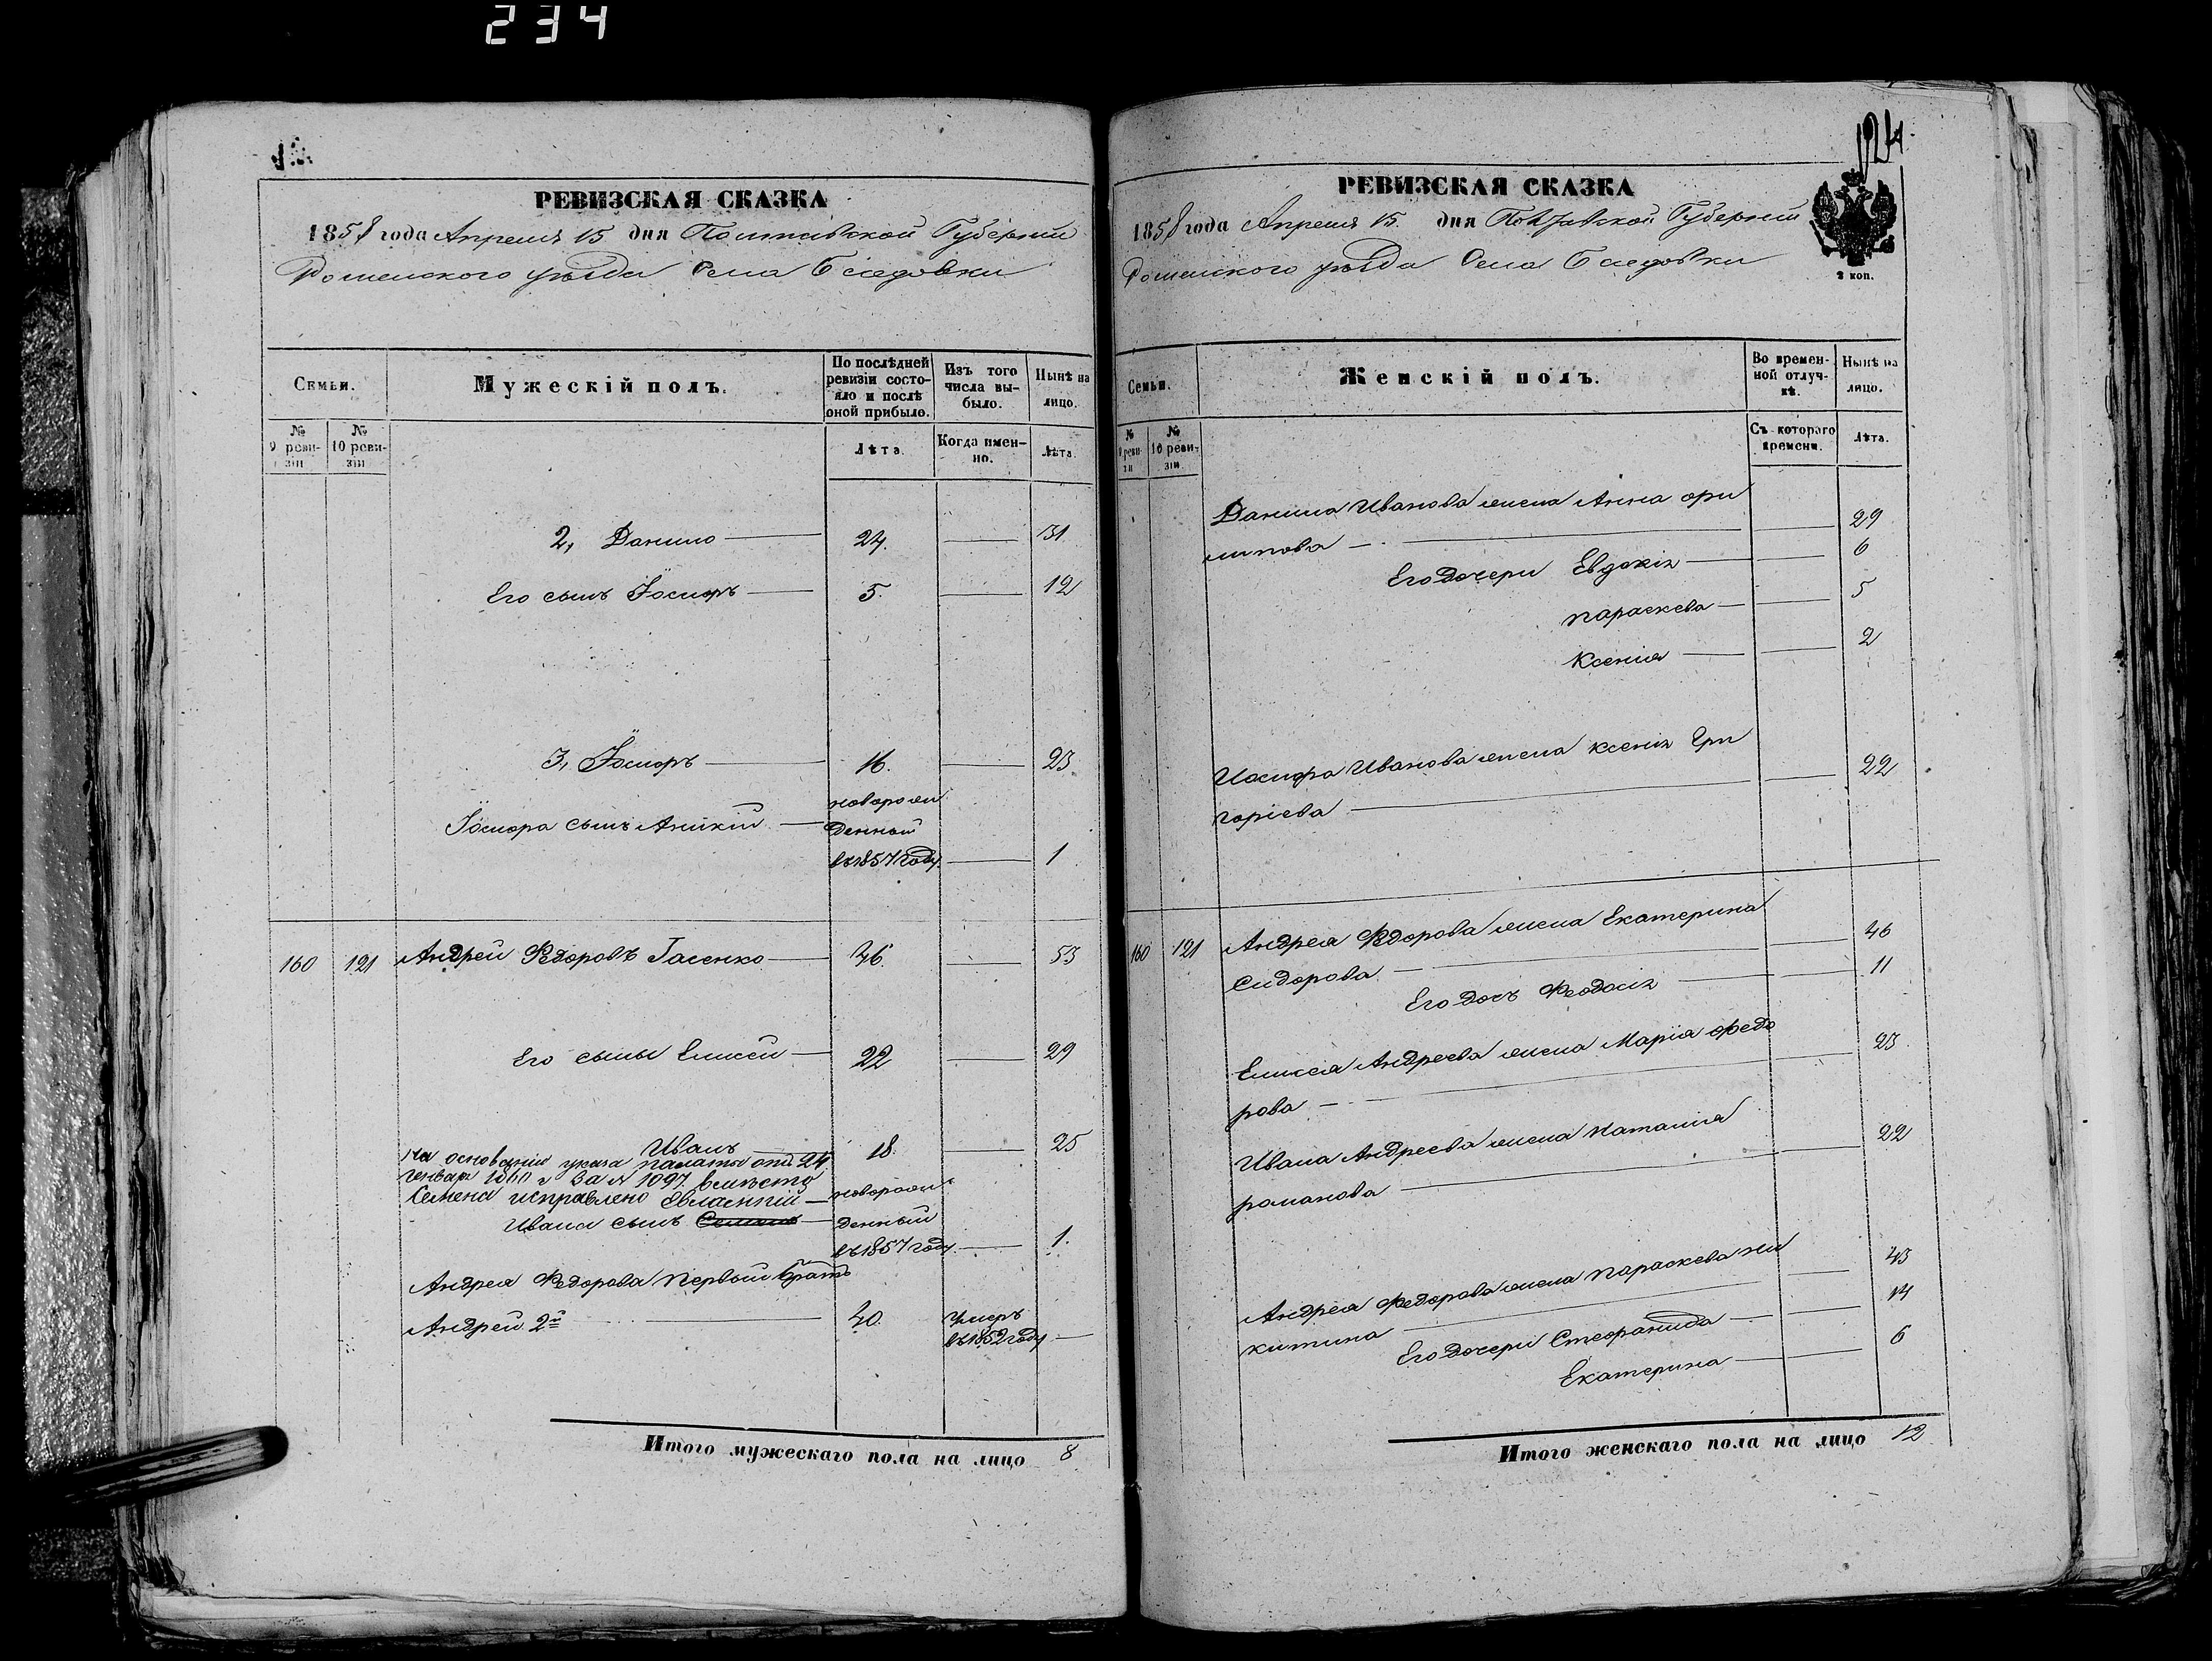 234
РЕВИЗСКАЯ СКАЗКА
1858 года Апреля 15 дня Полтавской Губернии
Роменского уѣзда Села Беседовки
Семьи.
Мужескій полъ.
По послѣдней ревизіи состояло и послѣ оной прибыло.
Изъ того числа выбыло.
Нынѣ на лицо.
№ 9 ревизіи
№ 10 ревизіи
Лѣта.
Когда именно.
Лѣта.
2, Данило 24. 31
Его сынъ Іосифъ 5. 12
3, Іосифъ 16. 23
новорож
Іосифа сынъ Аникій денный
въ 1857 году. 1
160 121 Андрей Федоровъ Гасенко 46. 53
Его сыны Елисей 22 29
Иванъ 18. 25
На основаніи указа палаты отъ 24
Генваря 1860 г за № 1097. вместо
Семена исправлено Евлампій новорож
Ивана сынъ Семенъ денный
въ 1857 году. 1.
Андрея Федорова первый братъ
Андрей 2й 40. Умеръ
въ 1852 году
Итого мужескаго пола на лицо 8
124.
РЕВИЗСКАЯ СКАЗКА
1858 года Апреля 15. дня Полтавской Губерніи
Роменского уѣзда Села Беседовки
2 коп.
Семьи.
Женскій полъ.
Во временной отлучкѣ.
Нынѣ на лицо.
№ 9 ревизіи
№ 10 ревизіи
Съ котораго времени.
Лѣта.
Данила Иванова жена Анна фи
липова 29
Его дочери Евдокія 6
параскева 5
Ксенія 2
Иосифа Иванова жена ксенія Гри
горіева 22
160 121 Андрея Федорова жена Екатерина
Сидорова 46
Его дочь Феодосія 11
Елисея Андреева жена Марія федо
рова 23
Ивана Андреева жена Наталія
романова 22
Андрея Федорова жена параскева Ни
китина 43
Его дочери Стефанида 14
Екатерина 6
Итого женскаго пола на лицо 12